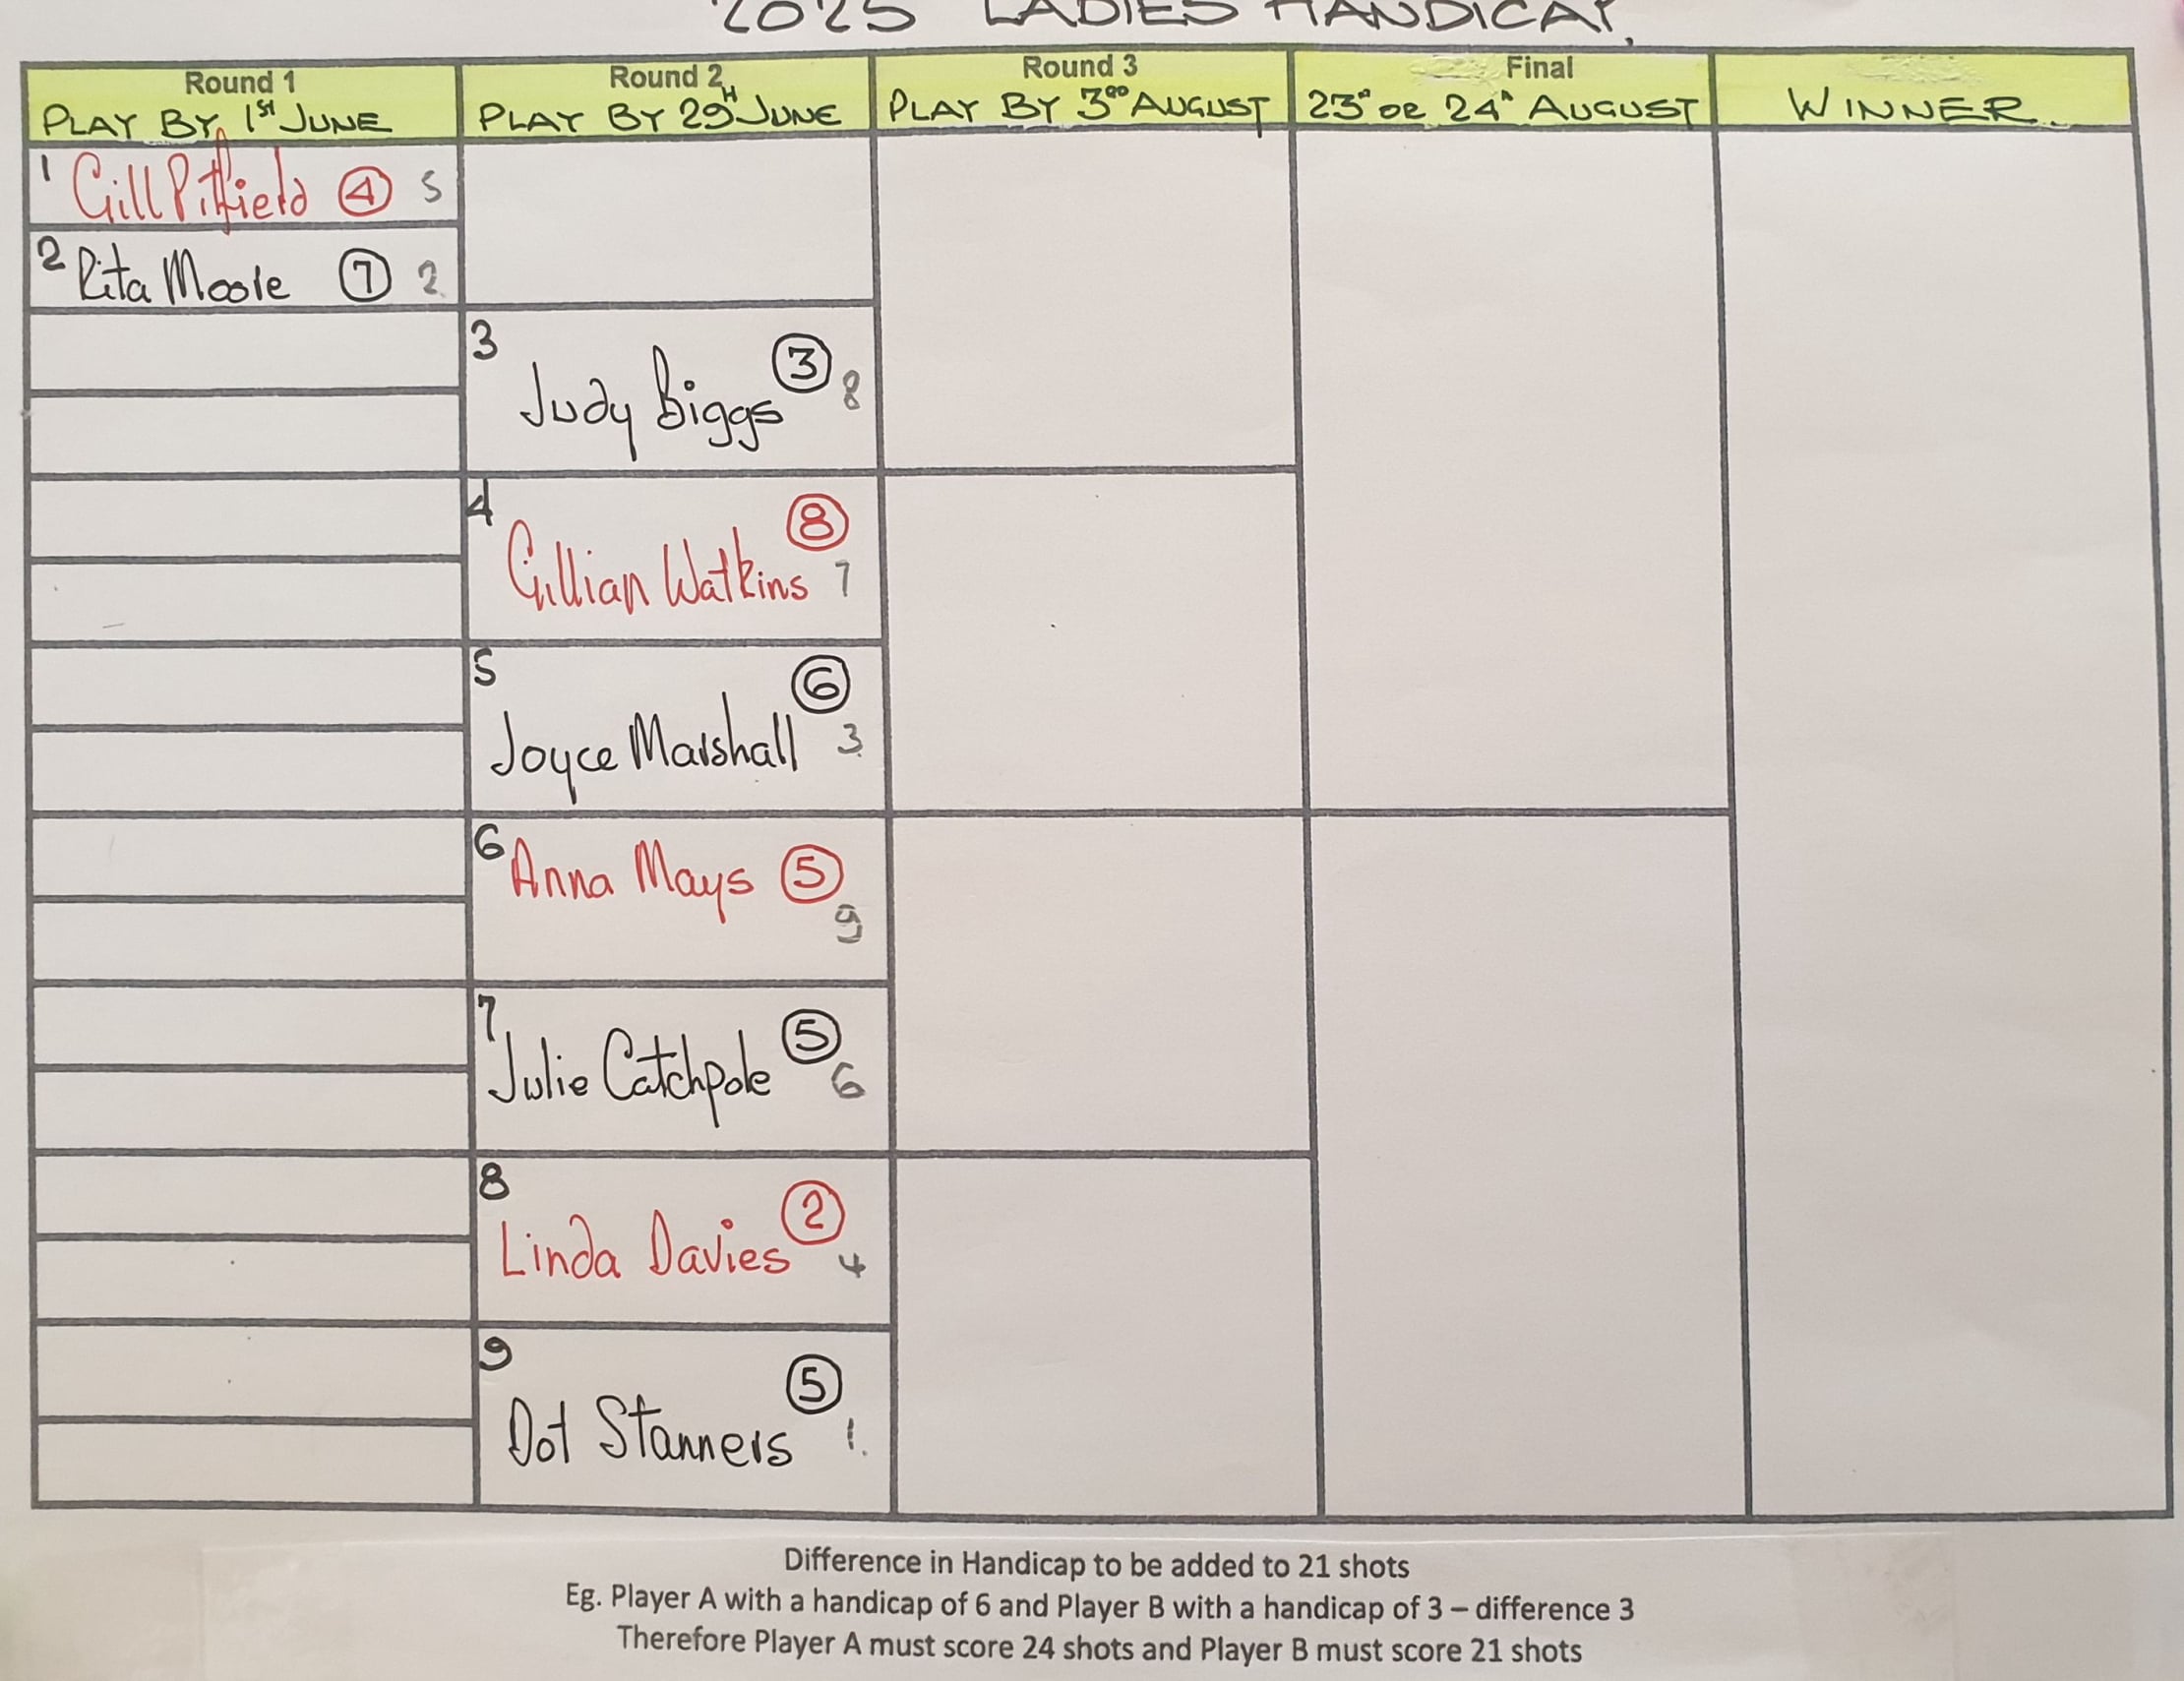 2025 LADIES HANDICAP.
Round 1
PLAY BY 1ST JUNE
Round 2
PLAY BY 29TH JUNE
Round 3
PLAY BY 3RD AUGUST
Final
23RD OR 24TH AUGUST
WINNER.
1 Gill Pitfield 4 5
2 Rita Moore 7 2
3 Judy Biggs 3 8
4 Gillian Watkins 8 7
5 Joyce Marshall 6 3
6 Anna Mays 5 9
7 Julie Catchpole 5 6
8 Linda Davies 2 4
9 Dot Stanners 5 1.
Difference in Handicap to be added to 21 shots
Eg. Player A with a handicap of 6 and Player B with a handicap of 3 – difference 3
Therefore Player A must score 24 shots and Player B must score 21 shots